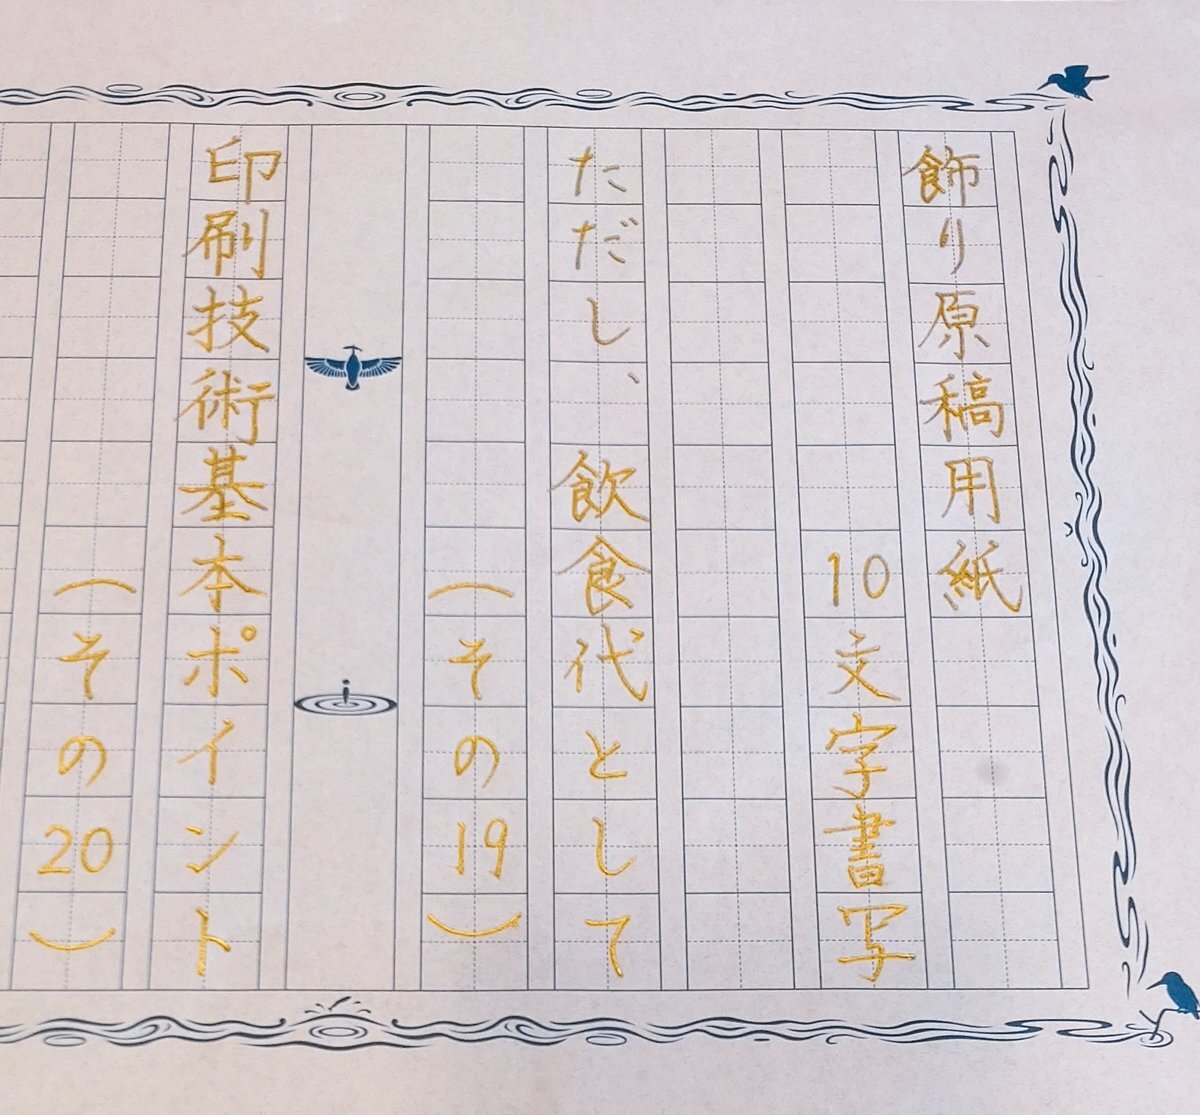 飾り原稿用紙
10文字書写
ただし、飲食代として
（その19）
印刷技術基本ポイント
（その20）